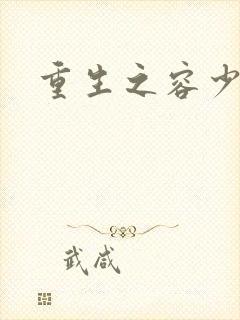 重生之容少
武咸